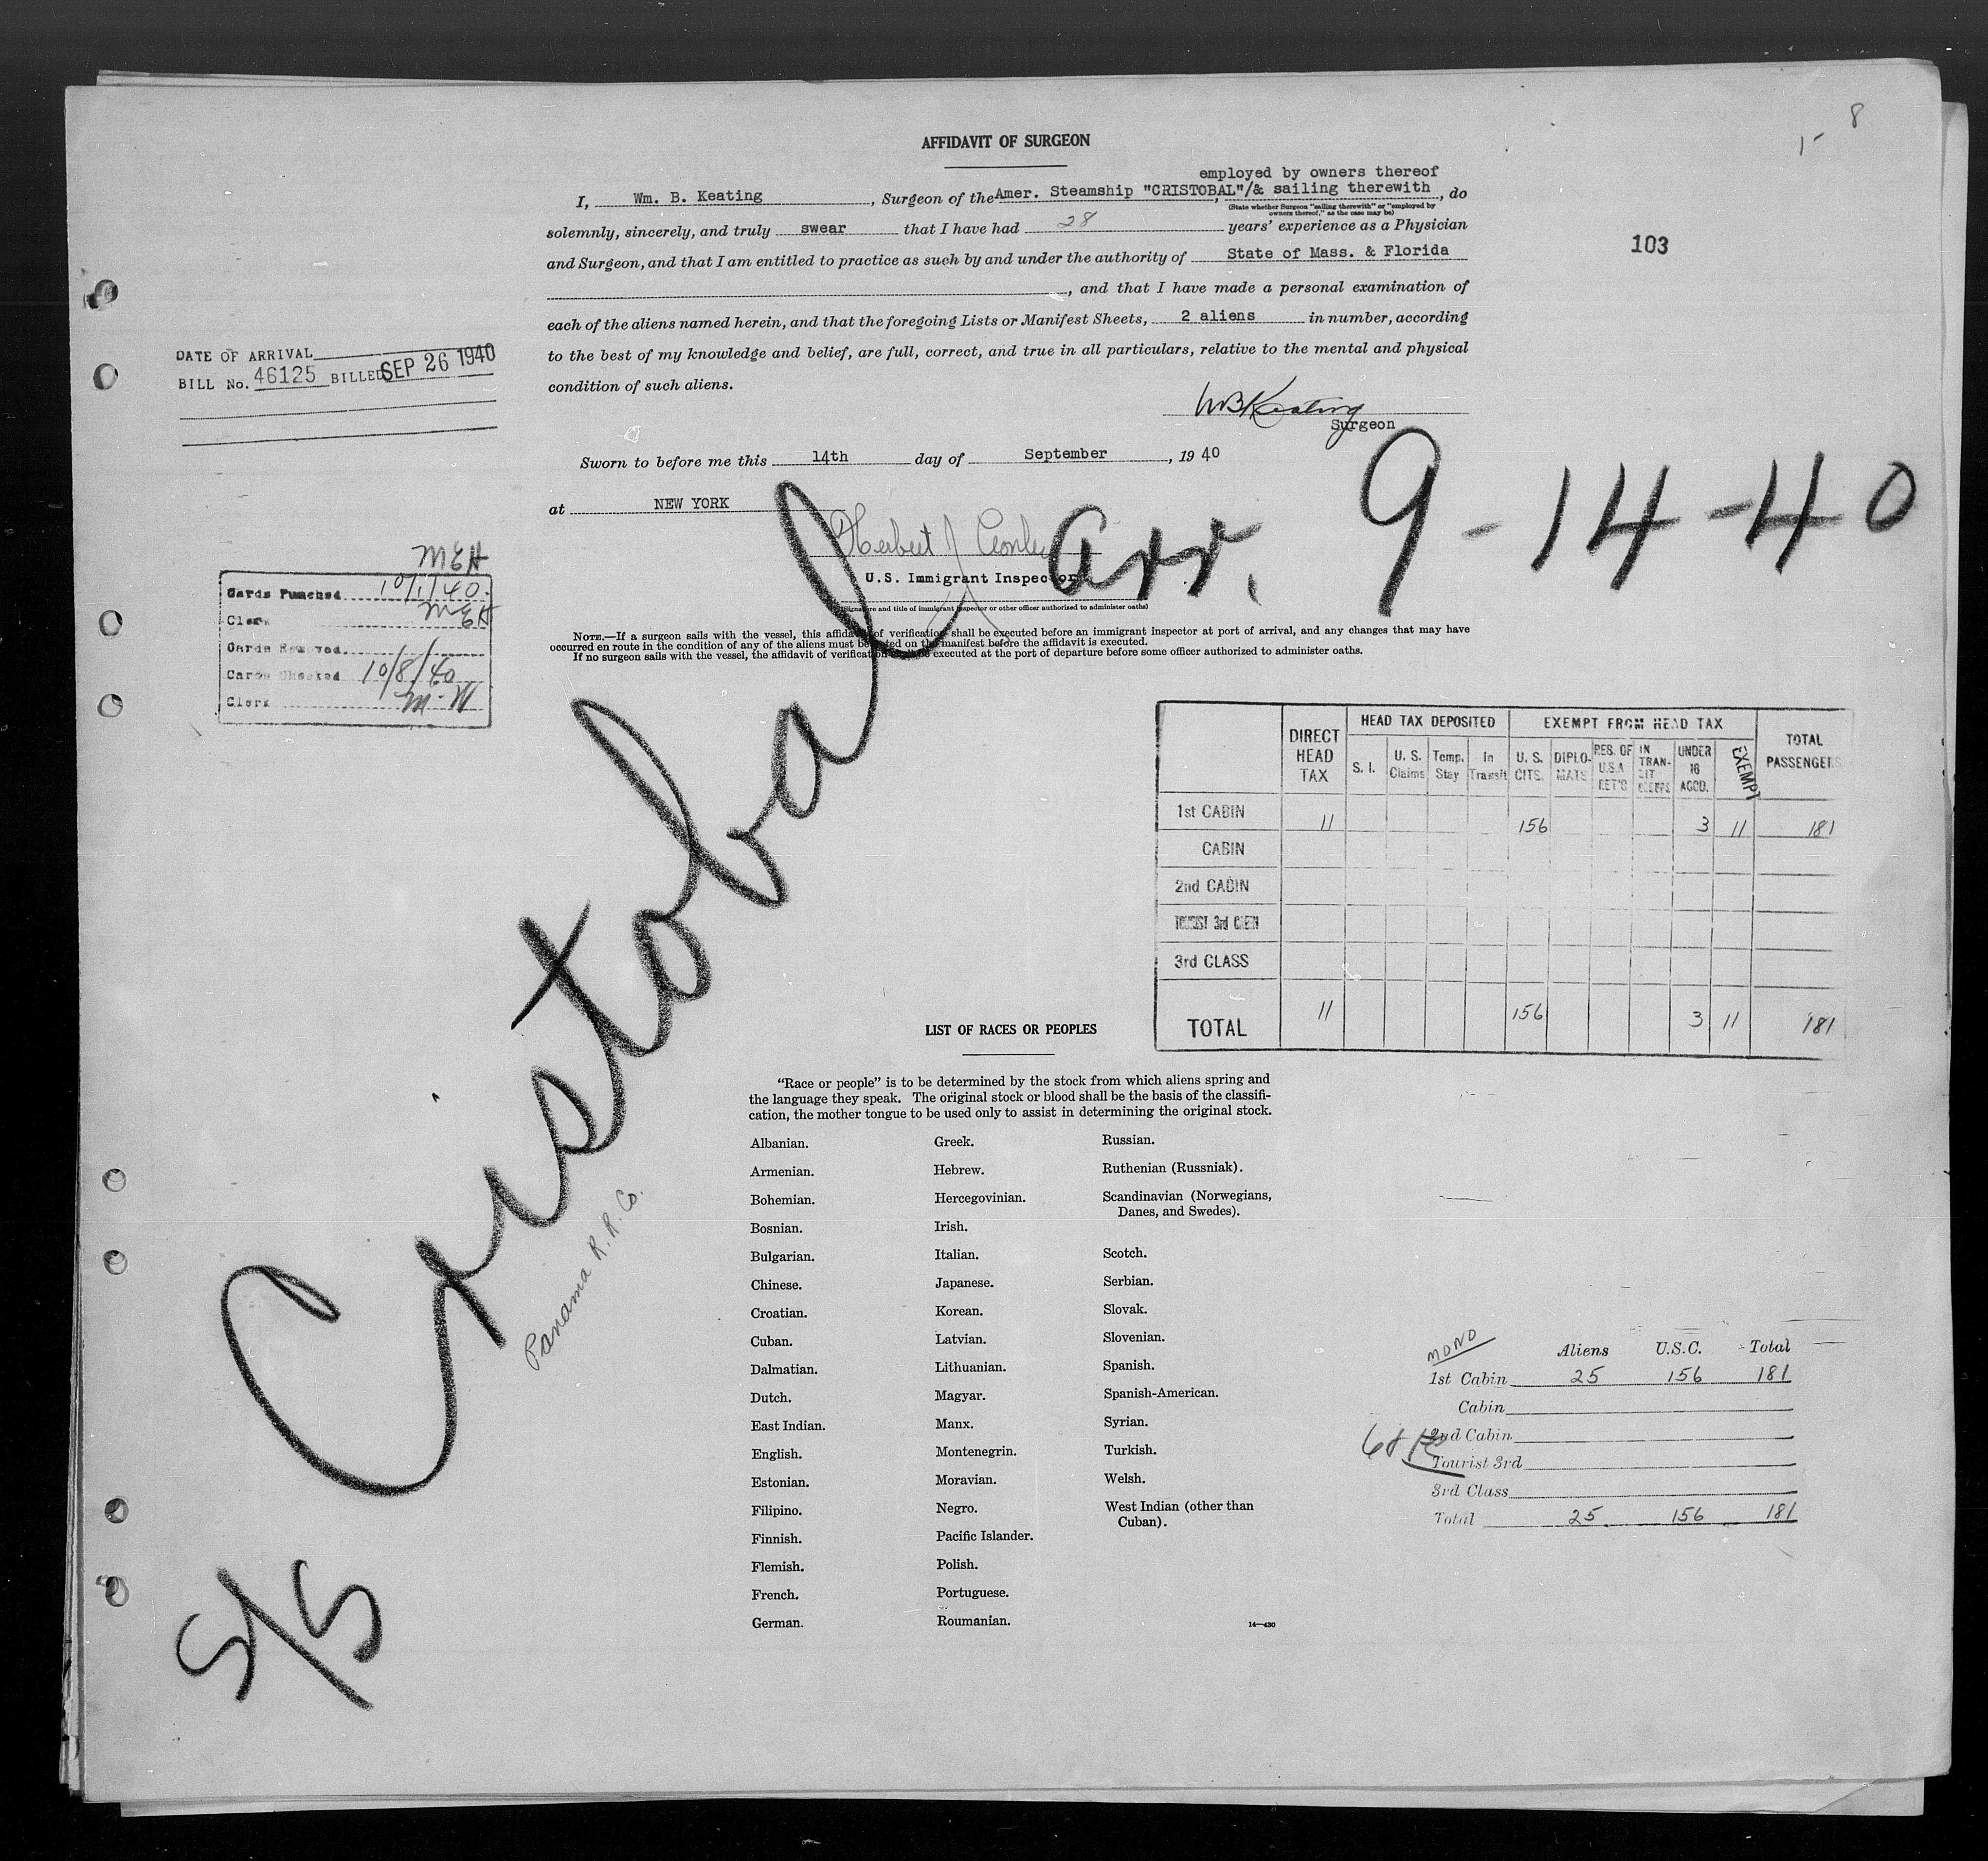 8
1-
AFFIDAVIT OF SURGEON
employed by owners thereof
I, Wm. B. Keating, Surgeon of the Amer. Steamship "CRISTOBAL"/& sailing therewith, do
(State whether Surgeon "sailing therewith" or "employed by
owners thereof," as the case may be)
solemnly, sincerely, and truly swear that I have had 28 years' experience as a Physician
103
and Surgeon, and that I am entitled to practice as such by and under the authority of State of Mass. & Florida
, and that I have made a personal examination of
each of the aliens named herein, and that the foregoing Lists or Manifest Sheets, 2 aliens in number, according
to the best of my knowledge and belief, are full, correct, and true in all particulars, relative to the mental and physical
condition of such aliens.
DATE OF ARRIVAL
BILL No. 46125 BILLED SEP 26 1940
WBKeating
Surgeon
Sworn to before me this 14th day of September, 19 40
at NEW YORK
Herbert J
U.S. Immigrant Inspector
(Signature and title of immigrant inspector or other officer authorized to administer oaths)
arr. 9-14-40
MEH
Cards Punched 10/1/40.
Clerk MEH
Cards Removed
Cards Checked 10/8/40
Clerk M.W
NOTE.—If a surgeon sails with the vessel, this affidavit of verification shall be executed before an immigrant inspector at port of arrival, and any changes that may have
occurred en route in the condition of any of the aliens must be noted on the manifest before the affidavit is executed.
If no surgeon sails with the vessel, the affidavit of verification shall be executed at the port of departure before some officer authorized to administer oaths.
S/S Cristobal
Panama R.R. Co.
DIRECT HEAD TAX HEAD TAX DEPOSITED EXEMPT FROM HEAD TAX TOTAL PASSENGERS
S. I. U. S. Claims Temp. Stay In Transit U. S. CITS. DIPLO-MATS RES. OF U.S.A RET'G IN TRAN-SIT UNDER 16 ACCD. EXEMPT
1st CABIN 11 156 3 11 181
CABIN
2nd CABIN
TOURIST 3rd CABIN
3rd CLASS
TOTAL 11 156 3 11 181
LIST OF RACES OR PEOPLES
"Race or people" is to be determined by the stock from which aliens spring and
the language they speak. The original stock or blood shall be the basis of the classifi-
cation, the mother tongue to be used only to assist in determining the original stock.
Albanian.
Armenian.
Bohemian.
Bosnian.
Bulgarian.
Chinese.
Croatian.
Cuban.
Dalmatian.
Dutch.
East Indian.
English.
Estonian.
Filipino.
Finnish.
Flemish.
French.
German.
Greek.
Hebrew.
Hercegovinian.
Irish.
Italian.
Japanese.
Korean.
Latvian.
Lithuanian.
Magyar.
Manx.
Montenegrin.
Moravian.
Negro.
Pacific Islander.
Polish.
Portuguese.
Roumanian.
Russian.
Ruthenian (Russniak).
Scandinavian (Norwegians,
Danes, and Swedes).
Scotch.
Serbian.
Slovak.
Slovenian.
Spanish.
Spanish-American.
Syrian.
Turkish.
Welsh.
West Indian (other than
Cuban).
14—430
MONO
Aliens U.S.C. Total
1st Cabin 25 156 181
Cabin
2nd Cabin
Tourist 3rd
3rd Class
Total 25 156 181